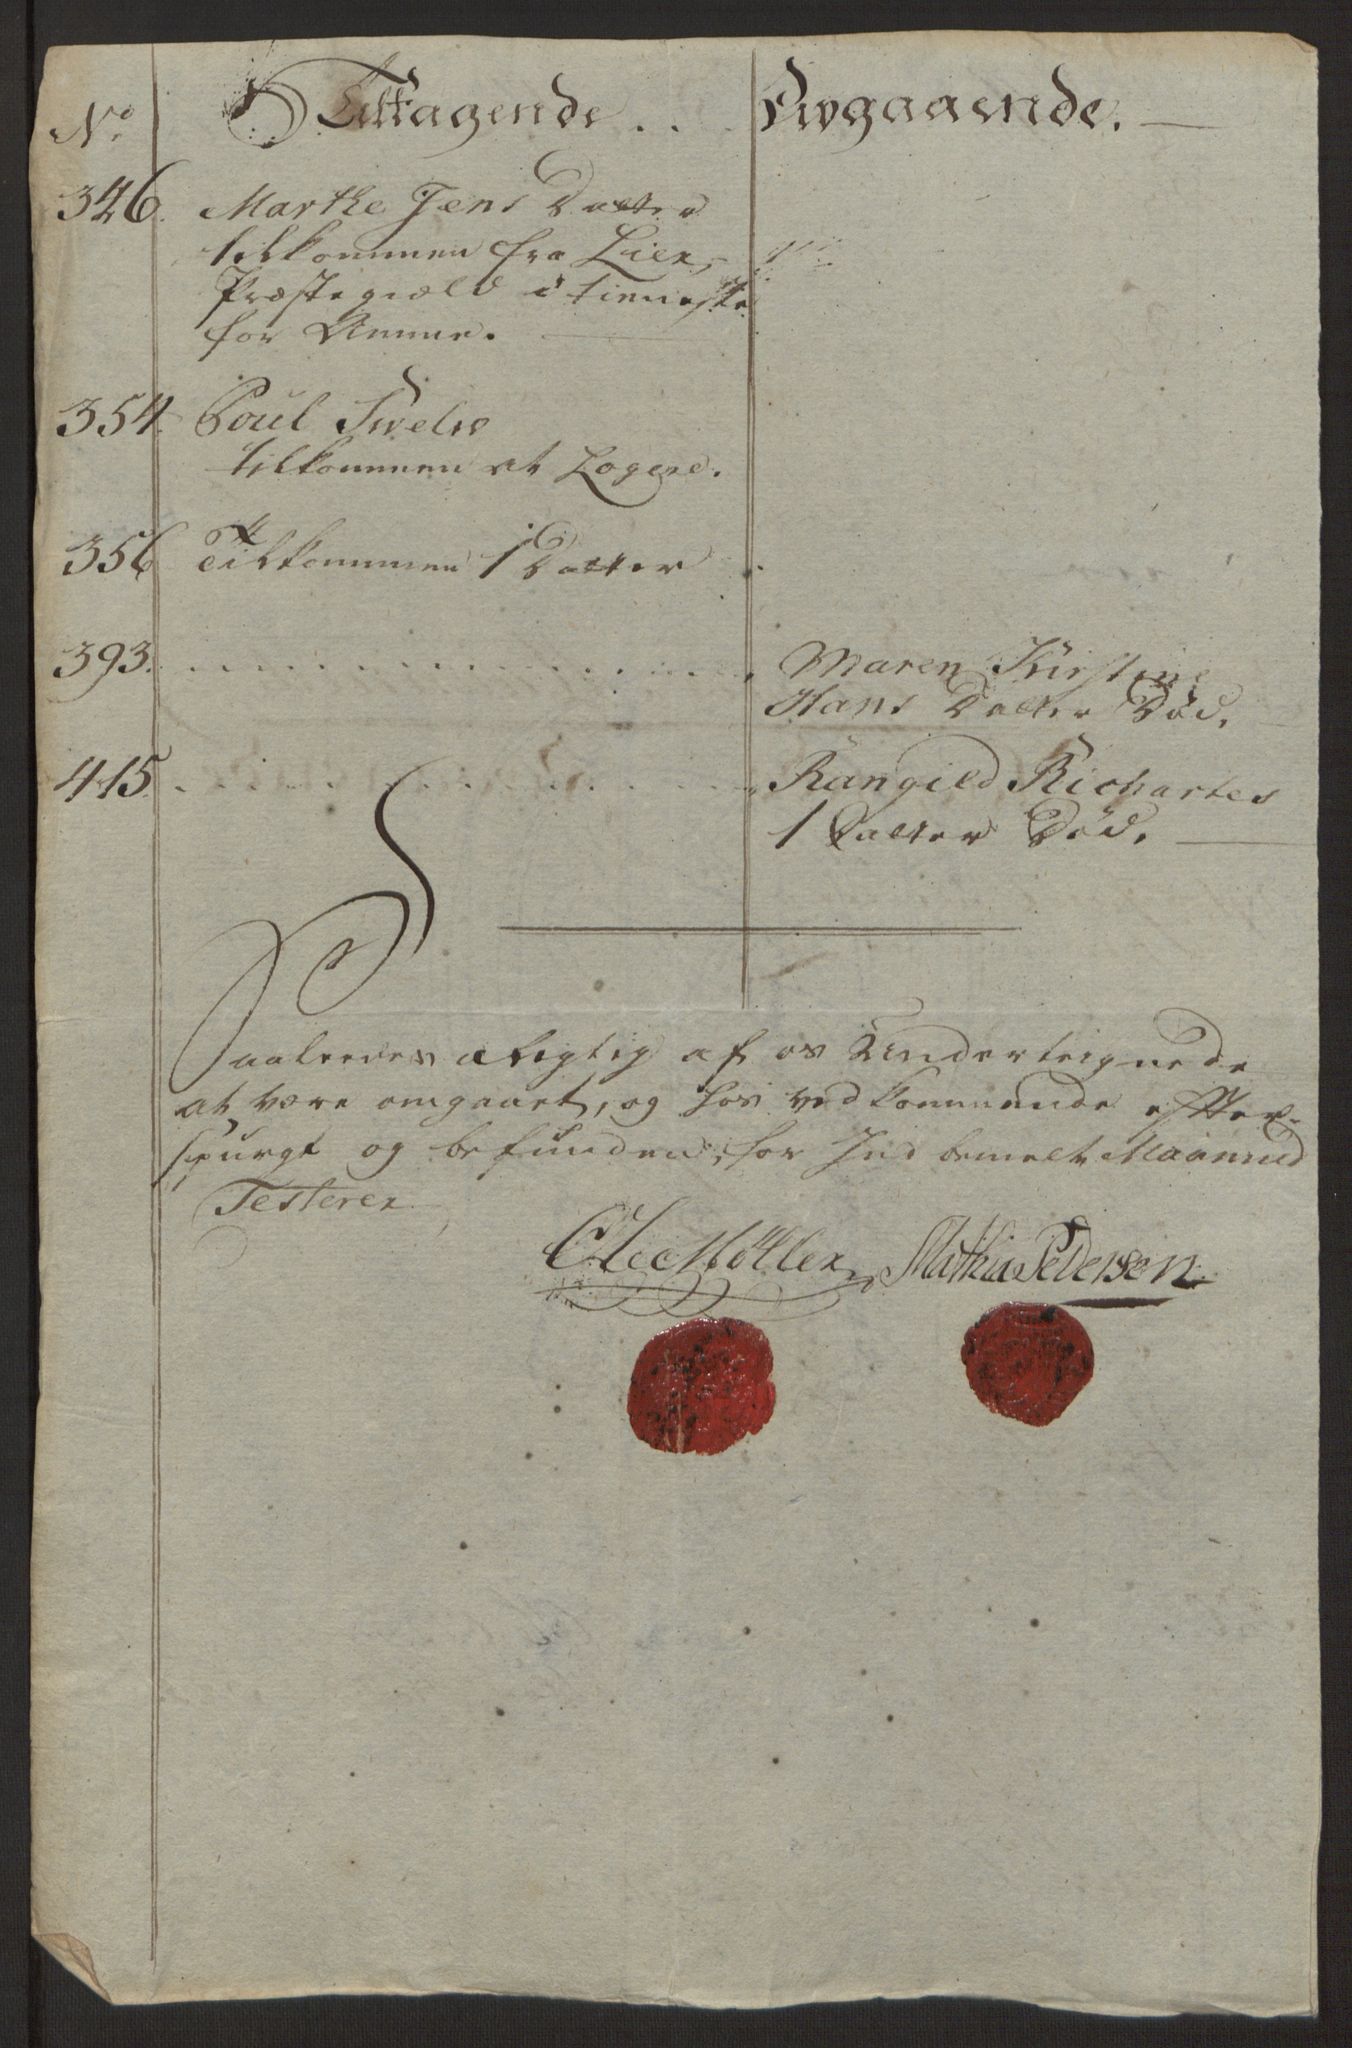 No Tiltagende . . Avgaaende.
346. Marthe Jens Datter
tilkommen fra Lier
Præstegiæld i tieneste
for Amme.
354. Poul
tilkommen at Logere.
356 Tilkommen 1 Datter
393. Maren Kirstine
Hans Datter Død.
415. Rangild Richartes
1 Datter Død.
Saaledes rigtig af os Underteignede
at være omgaaet, og hos vedkommende efter-
spurgt og befunden, for Ind bemelt Maaned
Testerer
Ole Möller Mathia Pedersen